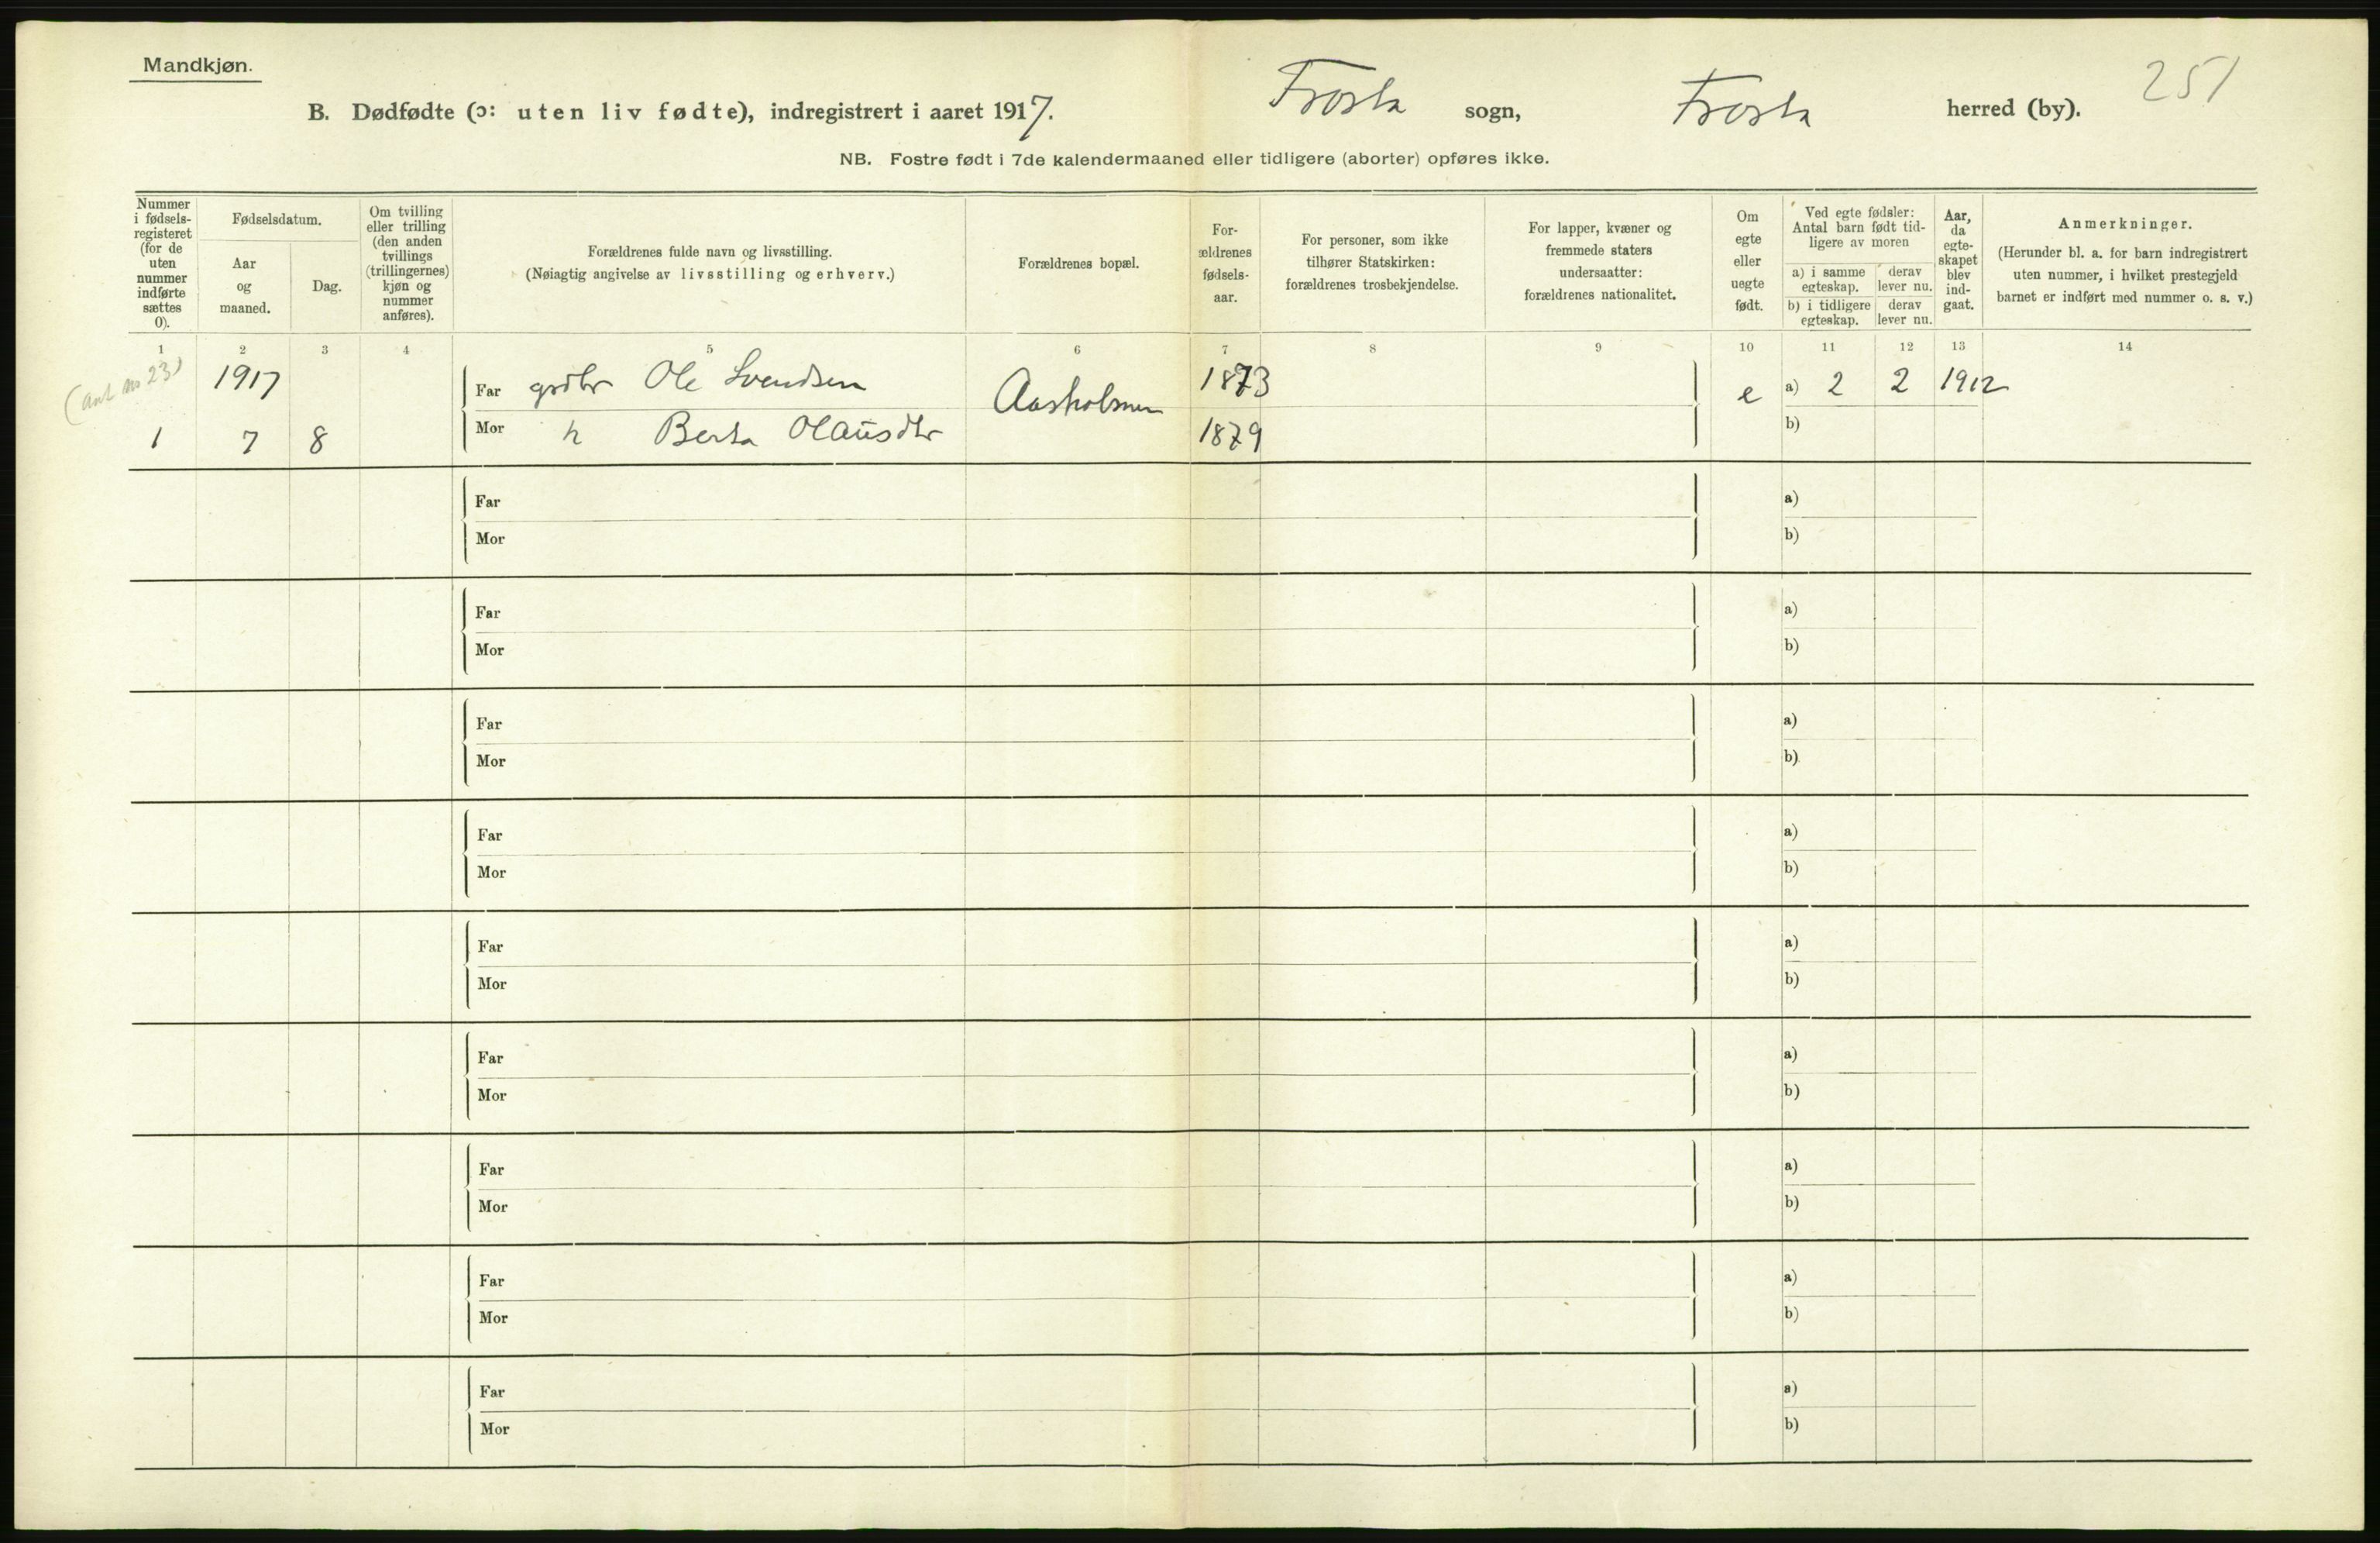 Mandkjøn.
251
B. Dødfødte (ɔ: uten liv fødte), indregistrert i aaret 1917. Frosta sogn, Frosta herred (by).
NB. Fostre født i 7de kalendermaaned eller tidligere (aborter) opføres ikke.
Nummer i fødsels-registeret (for de uten nummer indførte sættes 0).
Fødselsdatum.
Aar og maaned.
Dag.
Om tvilling eller trilling (den anden tvillings (trillingernes) kjøn og nummer anføres).
Forældrenes fulde navn og livsstilling.
(Nøiagtig angivelse av livsstilling og erhverv.)
Forældrenes bopæl.
For-ældrenes fødsels-aar.
For personer, som ikke tilhører Statskirken: forældrenes trosbekjendelse.
For lapper, kvæner og fremmede staters undersaatter: forældrenes nationalitet.
Om egte eller uegte født.
Ved egte fødsler: Antal barn født tid-ligere av moren
a) i samme egteskap.
derav lever nu.
b) i tidligere egteskap.
derav lever nu.
Aar, da egte-skapet blev ind-gaat.
Anmerkninger.
(Herunder bl. a. for barn indregistrert uten nummer, i hvilket prestegjeld barnet er indført med nummer o. s. v.)
1 2 3 4 5 6 7 8 9 10 11 12 13 14
(ant no 23)
1917 Far grdbr Ole Svendsen Aasholmen 1873 e a) 2 2 1912
1 7 8 Mor h Berta Olausdtr 1879 b)
Far a)
Mor b)
Far a)
Mor b)
Far a)
Mor b)
Far a)
Mor b)
Far a)
Mor b)
Far a)
Mor b)
Far a)
Mor b)
Far a)
Mor b)
Far a)
Mor b)